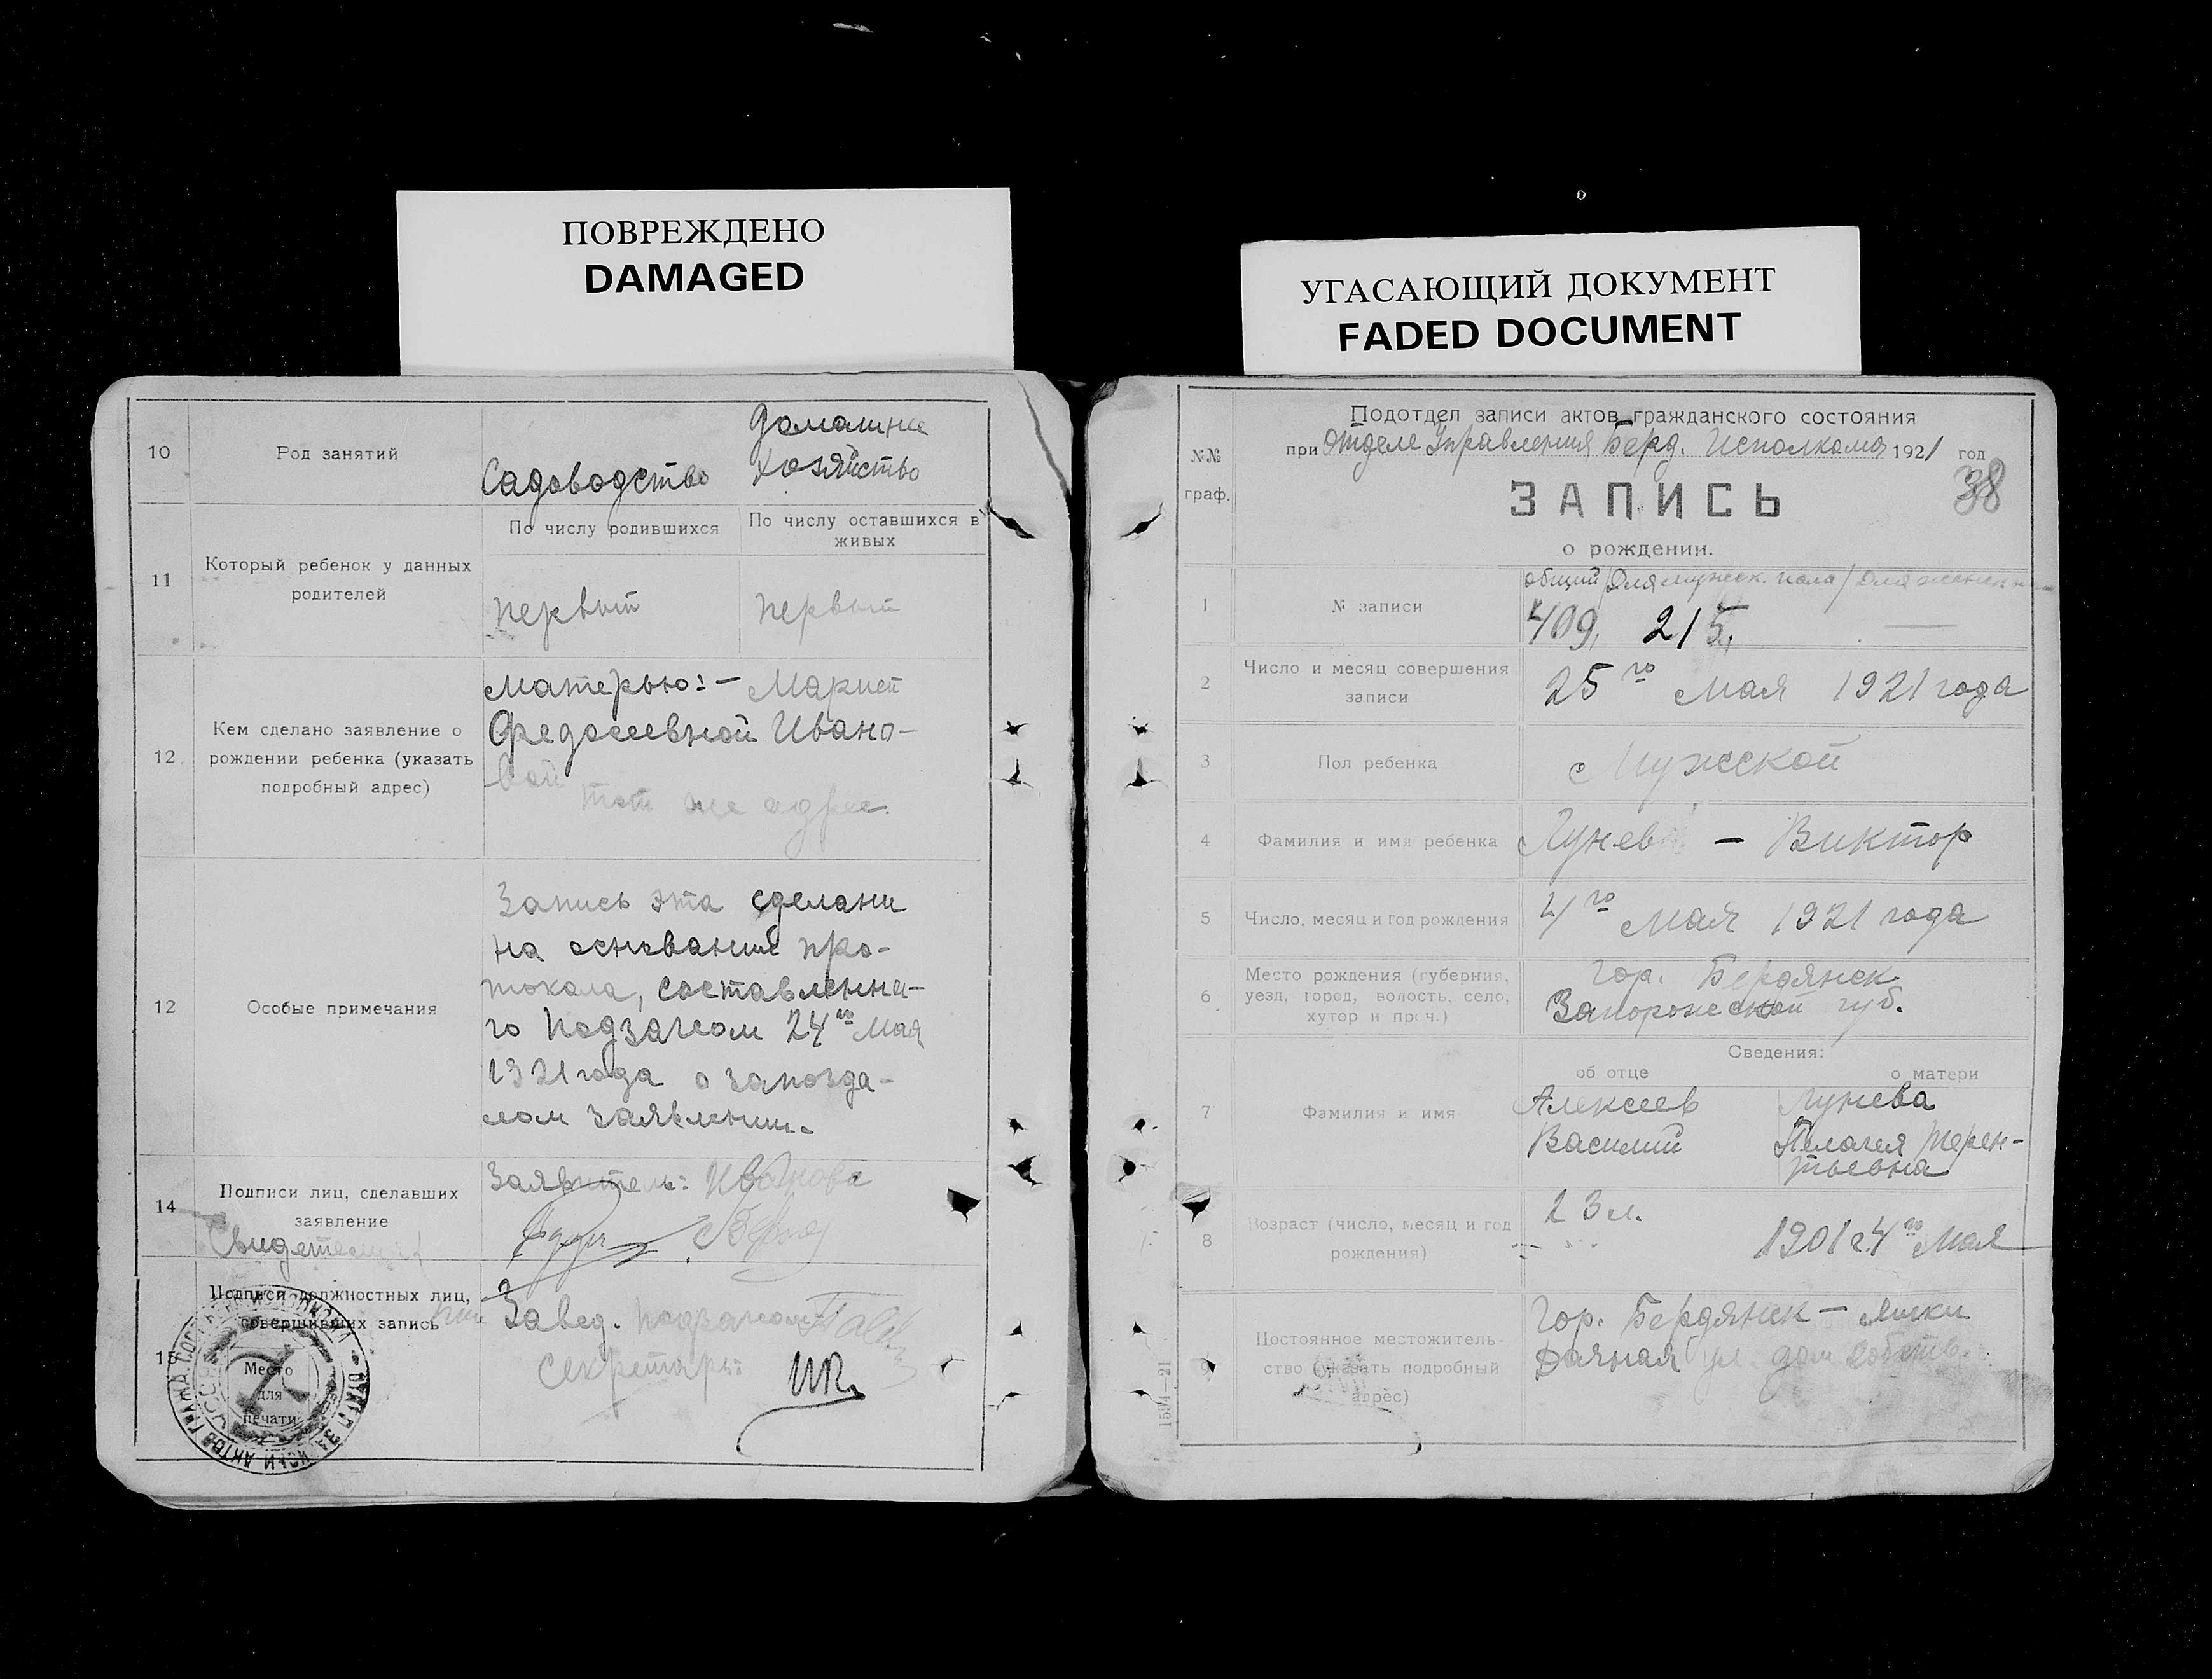 ПОВРЕЖДЕНО
DAMAGED
10
Род занятий
Садоводство
домашнее
хозяйство
11
Который ребенок у данных
родителей
По числу родившихся
По числу оставшихся в
живых
первый
первый
12
Кем сделано заявление о
рождении ребенка (указать
подробный адрес)
Матерью:— Марией
Федосеевной Ивано-
вой
тот же адрес.
12
Особые примечания
Запись эта сделана
на основании про-
токола, составленна-
го Подзагсом 24го Мая
1921 года о запозда-
лом заявлении.
14
Подписи лиц, сделавших
заявление
Свидетели
Заявитель: Иванова
15
Подписи должностных лиц,
совершивших запись
Место
для
печати
Завед. подзагсом
Секретарь:
УГАСАЮЩИЙ ДОКУМЕНТ
FADED DOCUMENT
№№
граф.
Подотдел записи актов гражданского состояния
при Отделе Управления Берд. Исполкома 1921 год
38
ЗАПИСЬ
о рождении.
1
№ записи
общий/для мужск. пола/для женск
409, 215,
2
Число и месяц совершения
записи
25го мая 1921 года
3
Пол ребенка
Мужской
4
Фамилия и имя ребенка
Лунев — Виктор
5
Число, месяц и год рождения
4го мая 1921 года
6
Место рождения (губерния,
уезд, город, волость, село,
хутор и проч.)
Гор. Бердянск
Запорожской губ.
Сведения:
об отце
о матери
7
Фамилия и имя
Алексеев
Василий
Лунева
Пелагея Терен-
тьевна
8
Возраст (число, месяц и год
рождения)
23 л.
1901 г. 4го Мая
9
Постоянное местожитель-
ство (указать подробный
адрес)
Гор. Бердянск — Лиски
ул дом собств.
1594—21